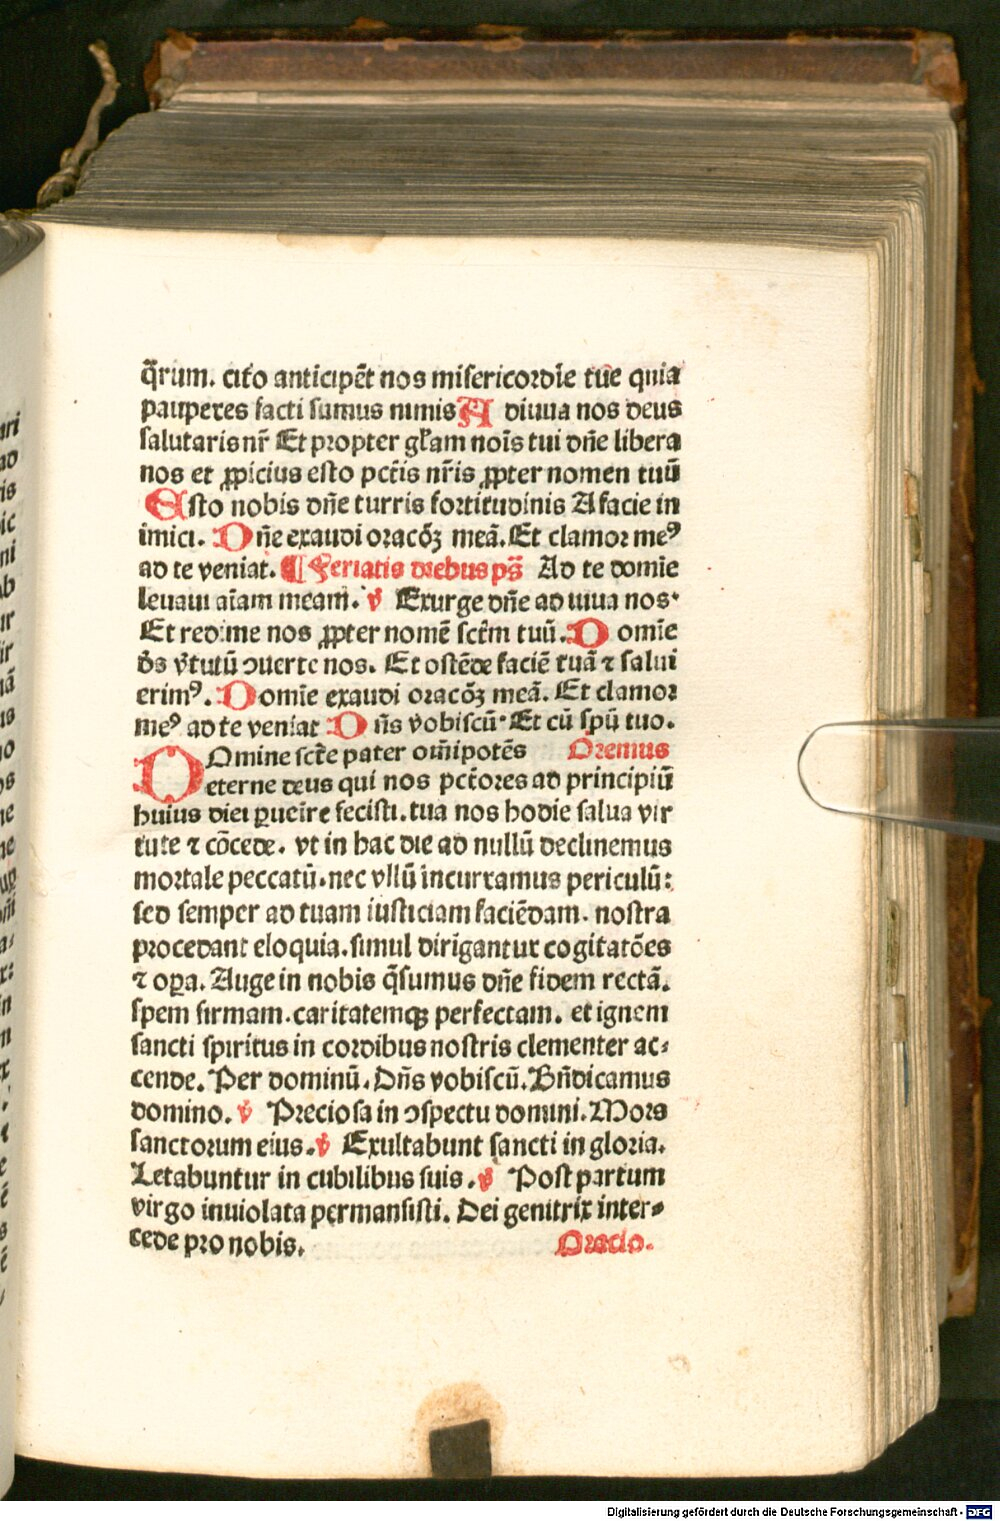 q̄rum. cito anticipēt nos misericordīe tūe quia
pauperes facti sumus nimis A diuua nos deus
salutaris nr̄ Et propter gl̄am noīs tui dn̄e libera
nos et ꝓpicius esto pct̄is nr̄is ꝓpter nomen tuū
Esto nobis dn̄e turris fortitudinis A facie in
imici. Dn̄e exaudi oracōꝫ meā. Et clamor meꝰ
ad te veniat. ¶ Feriatis diebus ps̄ Ad te domīe
leuaui aīam meam. ℣ Exurge dn̄e ad iuua nos.
Et redime nos ꝓpter nomē sct̄m tuū. Domīe
d̄s v̄tutū ↄuerte nos. Et ostēde faciē tuā ⁊ salui
erimꝰ. Domīe exaudi oracōꝫ meā. Et clamor
meꝰ ad te veniat Dn̄s vobiscū. Et cū sp̄u tuo.
DOmine sct̄e pater om̄ipotēs Oremus
eterne deus qui nos pct̄ores ad principiū
huius diei ꝑueīre fecisti. tua nos hodie salua vir
tute ⁊ cōcede. vt in hac die ad nullū declinemus
mortale peccatū. nec vllū incurramus periculū:
sed semper ad tuam iusticiam faciēdam. nostra
procedant eloquia. simul dirigantur cogitatōes
⁊ oꝑa. Auge in nobis q̄sumus dn̄e fidem rectā.
spem firmam. caritatemqꝫ perfectam. et ignem
sancti spiritus in cordibus nostris clementer ac⸗
cende. Per dominū. Dn̄s vobiscū. Bn̄dicamus
domino. ℣ Preciosa in ↄspectu domini. Mors
sanctorum eius. ℣ Exultabunt sancti in gloria.
Letabuntur in cubilibus suis. ℣ Post partum
virgo inuiolata permansisti. Dei genitrix inter⸗
cede pro nobis. Oracio.
Digitalisierung gefördert durch die Deutsche Forschungsgemeinschaft - DFG